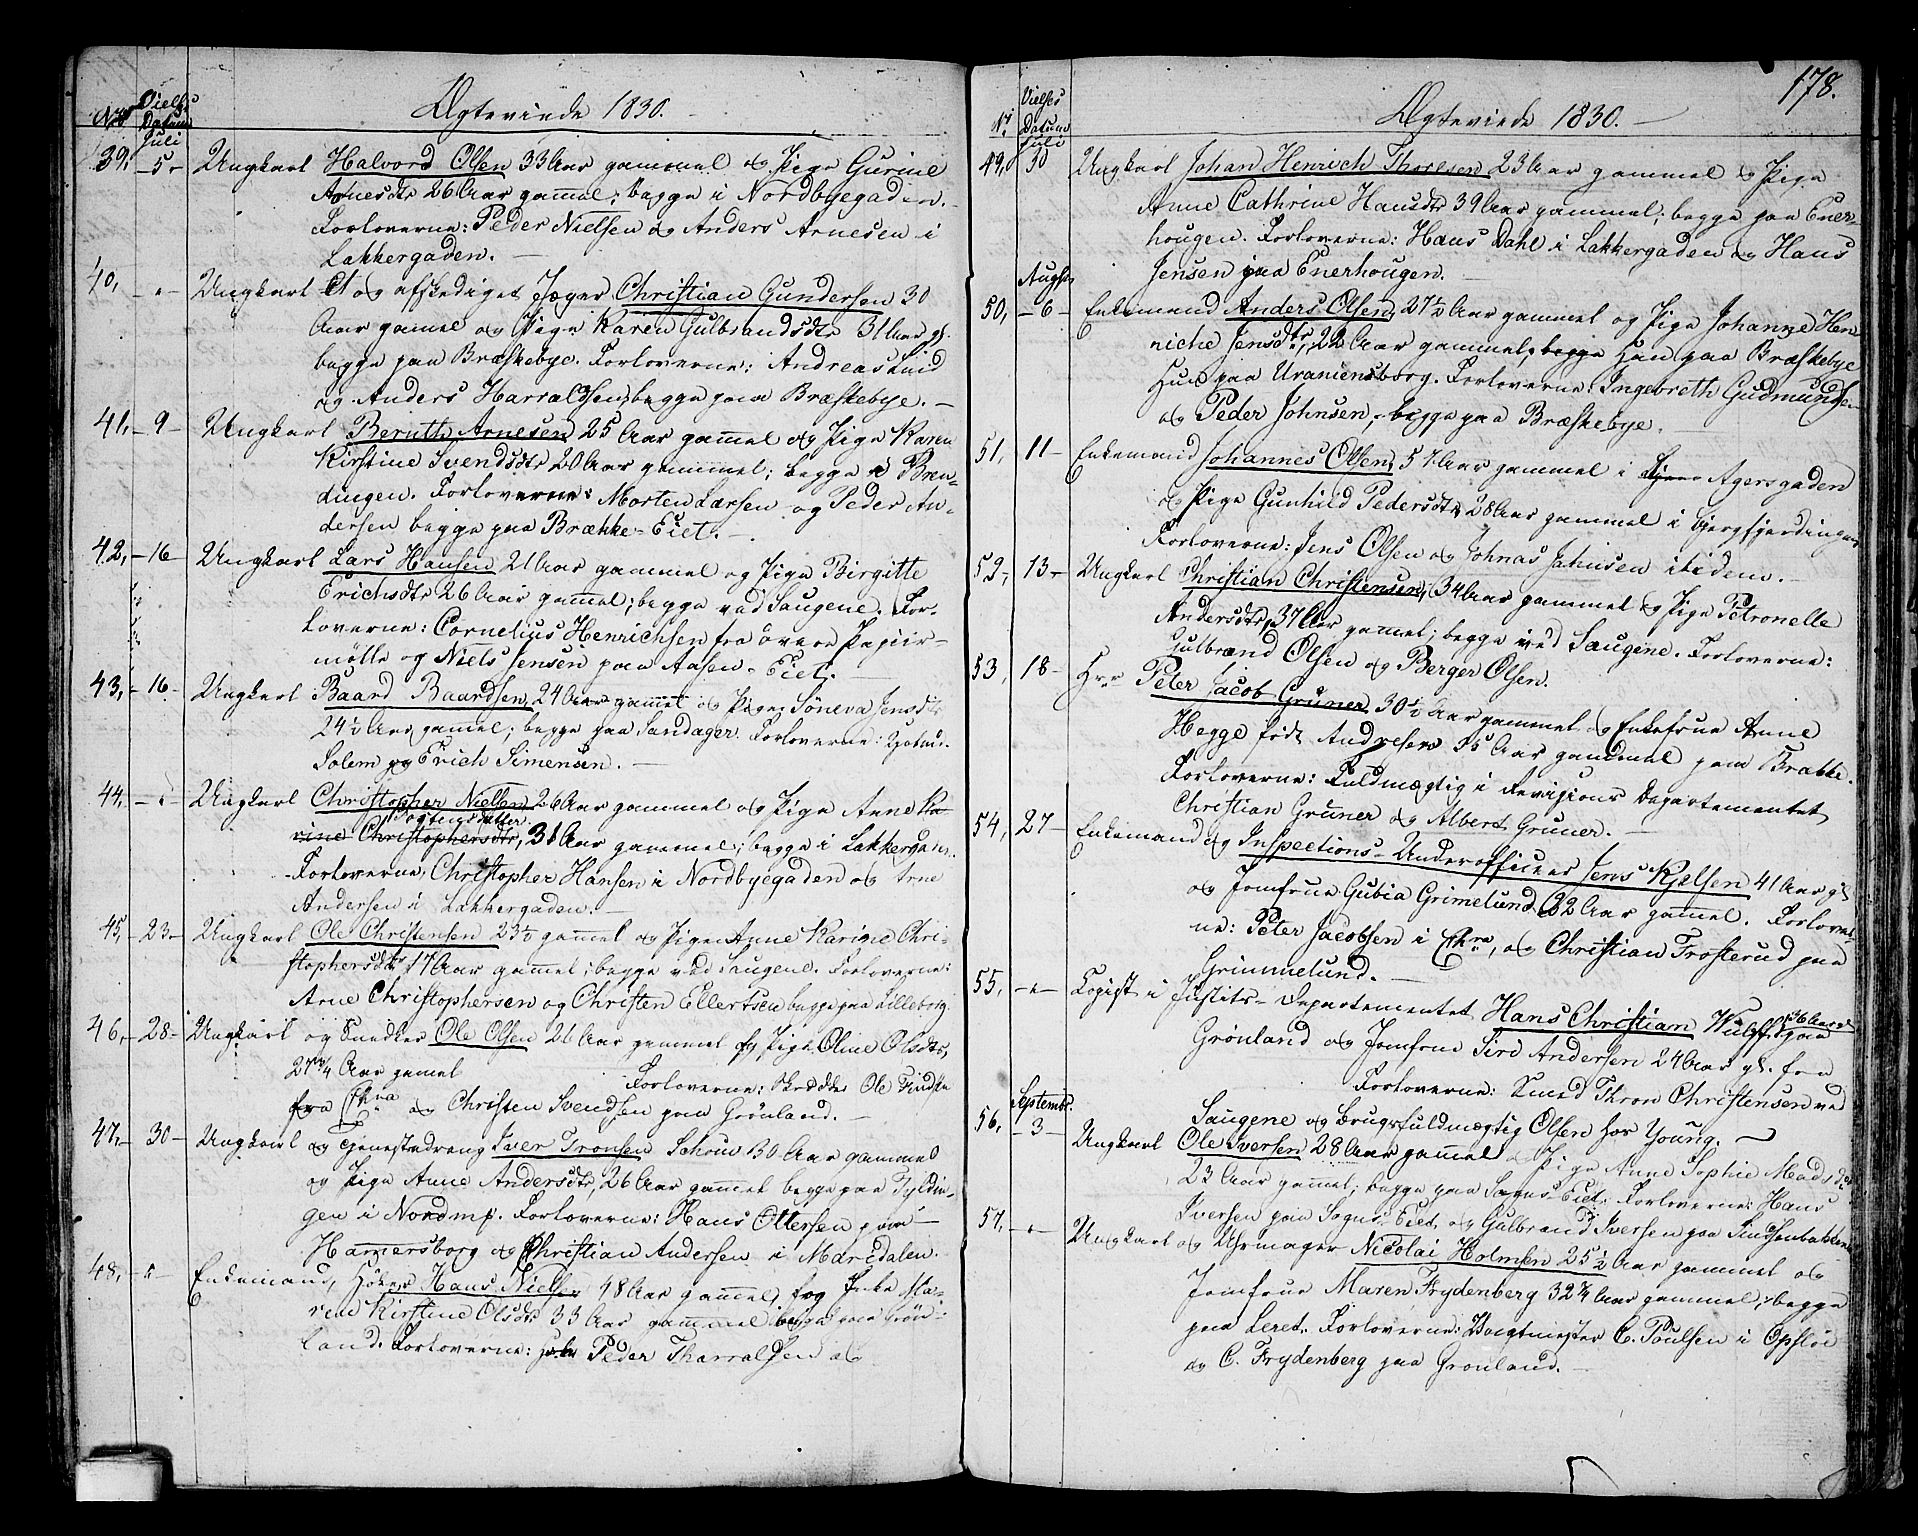 Nr Vielses Datum Ægteviede 1830.
Juli
39, 5 Ungkarl Halvord Olsen 33 Aar gammel og Pige Gurine
Arnesdtr 26 Aar gamel; begge i Nordbyegaden.
Forloverne: Peder Nielsen og Anders Arnesen i
Lakkergaden.
40, Ungkarl og afskediget Jæger Christian Gundersen 30
Aar gamel og Pige Karen Gulbrandsdtr 31 Aar gl.
begge paa Bræskebye. Forloverne: Andreas Lind
og Anders Harralsen, begge paa Bræskebye.
41, 9 Ungkarl Bernth Arnesen 25 Aar gamel og Pige Karen
Kirstine Svendsdtr 20 Aar gammel; begge i Bren-
dingen. Forloverne: Morten Larsen og Peder An-
dersen begge paa Brække-Eiet.
42, 16 Ungkarl Lars Hansen 21 Aar gammel og Pige Birgitte
Erichsdtr 26 Aar gamel; begge ved Saugene. For-
loverne: Cornelius Henrichsen fra övere Papiir-
mølle og Niels Jensen paa Aasen-Eiet.
43, 16 Ungkarl Baard Baardsen, 24 Aar gammel og Pige Søneva Jensdtr
24½ Aar gamel; begge paa Sandager. Forloverne:
Solem og Erich Simensen.
44, Ungkarl Christopher Nielsen 26 Aar gammel og Pige Anne Ka-
rine Christophersdtr, 31 Aar gammel; begge i Lakkergaden.
Forloverne, Christopher Hansen i Nordbyegaden og Arne
Andersen i Lakkergaden.
45, 23 Ungkarl Ole Christensen 23½ gammel og Pigen Anne Karine Chri-
stophersdtr, 17 Aar gamel; begge ved Saugene. Forloverne:
Arne Christophersen og Christen Ellertsen begge paa Lilleborg.
46, 28 Ungkarl og Snedker Ole Olsen 26 Aar gammel og Pige Oline Olsdtr,
27¾ Aar gamel Forloverne: Skrædder Ole
fra Chna og Christen Svendsen paa Grønland.
47, 30 Ungkarl og Tjenestedreng Iver Tronsen Schou 30 Aar gammel
og Pige Anne Andersdtr, 26 Aar gammel begge paa Tyldin-
gen i Nordmp. Forloverne: Hans Ottersen paa
Hamersborg og Christian Andersen i Maridalen.
48, Enkemand, Höker Hans Nielsen 48 Aar gammel og Enke Ma-
ren Kirstine Olsdtr 33 Aar gammel begge paa Grøn-
land. Forloverne: Peder Tharralsen og
178.
Nr Vielses Datum Ægteviede 1830.
Juli
49, 30 Ungkarl Johan Henrich Thoresen 23 Aar gammel og Pige
Anne Cathrine Hansdtr 39 Aar gammel; begge paa Ener-
hougen. Forloverne: Hans Dahl i Lakkergaden og Hans
Jensen paa Enerhougen.
August
50, 6 Enkemand Anders Olsen, 27½ Aar gammel og Pige Johanne Hen-
riche Jensdtr, 22 Aar gammel, begge Han paa Bræskebye
Hun paa Uranienborg. Forloverne: Ingebreth Gudmundsen
og Peder Johnsen, begge paa Bræskebye.
51, 11 Enkemand Johannes Olsen, 57 Aar gammel i Agersgaden
og Pige Gunhild Pedersdtr 28 Aar gammel i Bjergfjerdingen
Forloverne: Jens Olsen og Johnas Johnsen itidem.
52, 13 Ungkarl Christian Christensen, 34 Aar gammel og Pige Petronelle
Andersdtr, 37 Aar gammel; begge ved Saugene. Forloverne:
Gulbrand Olsen og Berger Olsen.
53, 18 Hrr Peter Jacob Grüner 30½ Aar gammel og Enkefrue Anne
Hegge født Andresen 35 Aar gammel paa Brække.
Forloverne: Fuldmægtig i Revisions Departementet
Christian Grüner og Albert Grüner.
54, 27 Enkemand og Inspections-Underofficeer Jens Kjelsen 41 Aar gl.
og Jomfrue Gubia Grimelund 32 Aar gamel. Forlover-
ne: Peter Jacobsen i Chra, og Christian Frosterud paa
Grimmelund.
55, Copist i Justits-Departementet Hans Christian Wulff, 36 Aar paa
Grönland og Jomfrue Siri Andersen 24 Aar gl. fra
Forloverne: Knud Thron Christensen ved
Saugene og Brugsfuldmægtig Olsen hos Young.
Septembr.
56, 3 Ungkarl Ole Iversen 28 Aar gammel Pige Anne Sophie Madsdtr
23 Aar gammel; begge paa Sogns Eiet. Forloverne: Hans
Iversen paa Sogns Eiet og Gulbrand Iversen paa Sinsenbakken
57, Ungkarl og Uhrmager Nicolai Holmsen 25½ Aar gammel og
Jomfrue Maren Frydenberg 32¼ Aar gammel; begge
paa Leret. Forloverne: Vægtmester C. Poulsen i Opsloe
og C. Frydenberg paa Grönland.